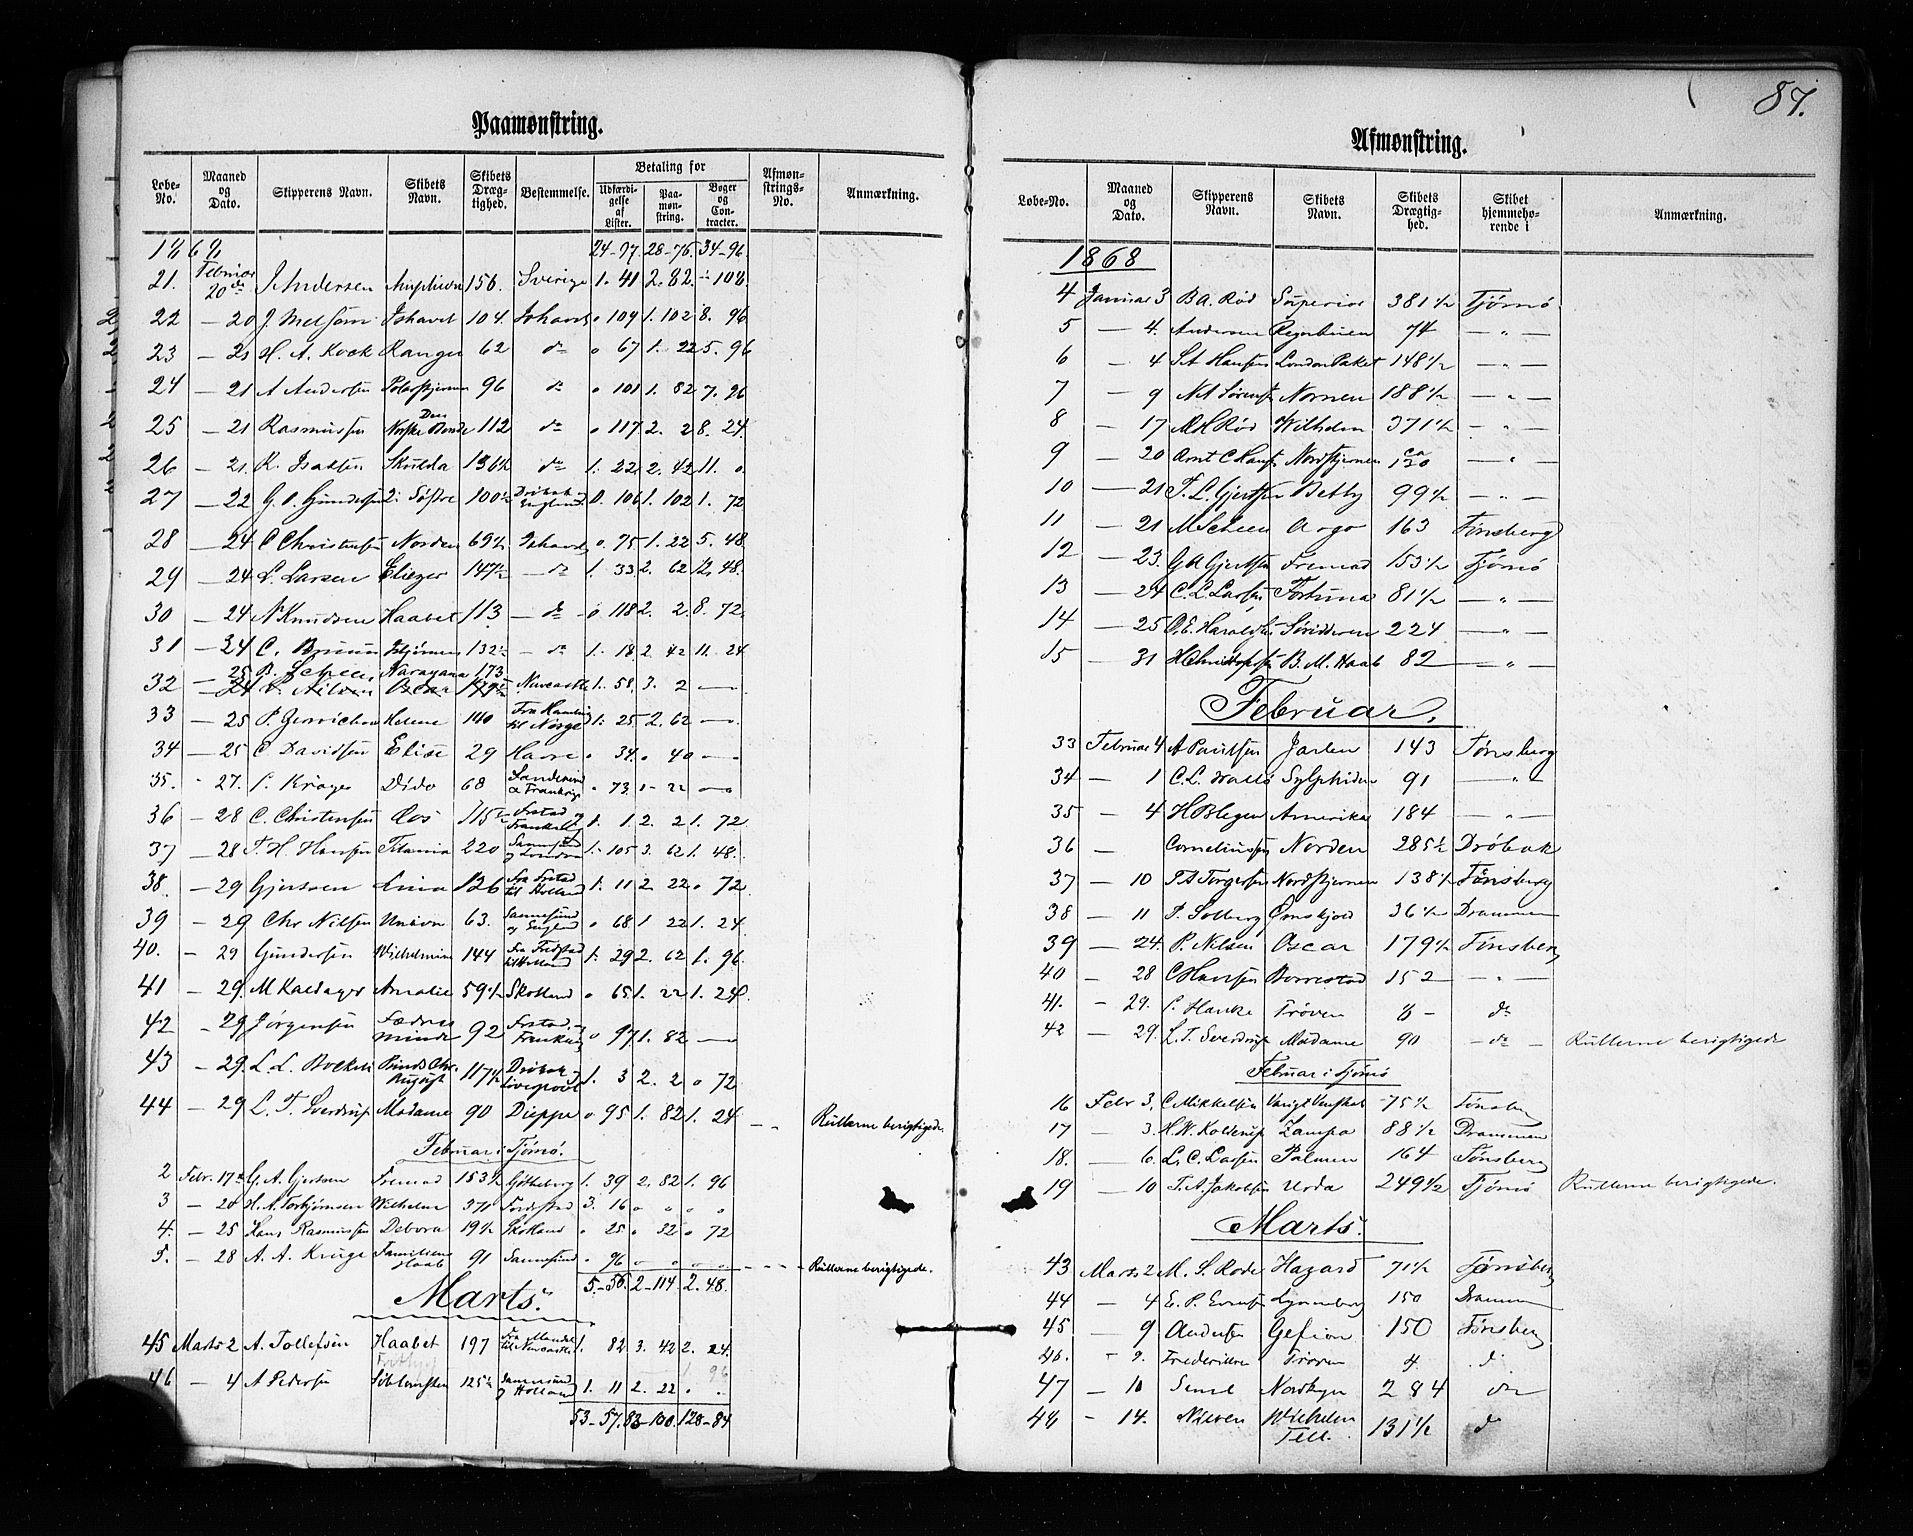 Paamønstring.
Løbe-No. | Maaned og Dato. | Skipperens Navn. | Skibets Navn. | Skibets Dræg-tighed. | Bestemmelse. | Betaling for | Udfærdi-gelse af Lister. | Paa-møn-string. | Bøger og Con-tracter. | Afmøn-strings-No. | Anmærkning.
24-97 28-76 34-96
21. Februar 20de J Andersen 156. Sverige 1. 41 2. 82. 108
22 — 20 J. Melsom Ishavet 104. Ishavet 0 109 1. 102 8. 96
23 — 21 H. A. Kock Ranger 62 do 0 67 1. 22 5. 96
24 — 21 A Andersen Polarstjernen 96 do 0 101 1. 82 7. 96
25 — 21 Rasmussen Den Norske Bonde 112 do 0 117 2. 2 8. 24
26 — 21 K. Isaksen Skulda 136½ do 1. 22 2. 42 11. 0
27 — 22 G. O. Gundersen 2 Søstre 100½ Drøbak England 0. 106 1. 102 1. 72
28 — 24 C Christensen Norden 69½ Ishavet 0. 75 1. 22 5. 48
29 — 24 L. Larsen Eliezer 147½ — do 1. 33 2. 62 12. 48.
30 — 24 N Knudsen Haabet 113 — do 0 118 2. 2. 8. 72
31 — 24 C. Bruun 132½ — do 1. 18 2. 42 11. 24
— 25 B. Scheen Narayana 173
32 — 24 P. Nilsen Oscar 179½ Newcastle 1. 58 3. 2 —
33 — 25 P. Helene 140 Fra Hamburg til Norge 1. 25 2. 62 —
34 — 25 C Davidsen Elise 29 Havre 0 34. 0 40 —
35. 27. Krøger Dido 68 & Frankrige 0 73 0 22 —
36 — 28 C. Christensen Ros 115½ Frstad Frankrig 1. 1 2. 2 1. 72
37 — 28 T. H. Hansen Titania 220 Sannesund og London 1. 105 3. 62 1. 48.
38. — 29 Gjersøen Lina 126 Fra Frstad til Holland 1. 11 2 22 0 72
39 — 29 Chr Nilsen Union 63. Sannesund og England 0 68 1 22 1. 24
40. — 29 Gundersen Wilhelmine 144 Fra Fredstad til Holland 1. 29 2. 62 1. 96
41 — 29. M Kaldager Amalie 59½ Skotland 0 65 1. 22 1. 24
42 — 29 Jørgensen Fædres Minde 92 Frstad Frankrig 0 97 1. 82 —
43 — 29. L. L. Bakken Chr. August 117½ Drøbak Liverpool 1. 3 2. 2 0 72
44 — 29 L. T. Sverdrup Madame 90 Dieppe 0 95 1. 82 1. 24 Rullerne berigtigede.
Februar i Tjømø.
2 Febr. 17de G. A. Gjertsen Fremad 153½ Gøtheborg 1. 39 2. 82 1. 96
3 — 20 H. A. Torbjørnsen Wilhelm 371 Fredstad 3. 16 0 0 0 0
4. — 25 Hans Rasmussen Debora 19½ Skotland 0 25 0 32 0 72
5. — 28 A. A. Kruge Familiens Haab 91 Sannesund 0 96 0 0 0 0 Rullerne berigtigede.
5-56 2-114 2. 48.
Marts.
45 Marts 2 A. Tollefsen Haabet 197 Fra Mandal til Newcastle 1. 82 3. 42 2. 24
46 — 4 A Pedersen 125½ Sannesund og Holland 1. 11 2. 22 0
53-57. 83-100. 128-84
87.
Afmønstring.
Løbe-No. | Maaned og Dato. | Skipperens Navn. | Skibets Navn. | Skibets Drægtig-hed. | Skibet hjemmehø-rende i | Anmærkning.
1868
4 Januar 3 B A. Rød Superior 381½ Tjømø.
5 — 4. Andersen Regnbuen 74 — " —
6 — 4 S A Hansen London Paket 148½ — " —
7 — 9 N A Sørensen Nornen 188½ — " —
8 — 17 A H Rød Wilhelm 371½ — " —
9 — 20 Arnt C Hansen Nordstjernen ca 120 — " —
10 — 21 T. L. Gjertsen Betty 99½ — " —
11 — 21 M Scheen Argo 163 Tønsberg
12 — 23. G A Gjertsen Fremad 153½ Tjømø
13 — 24 C. L. Larsen Fortuna 81½ — " —
14 — 25 O. E. Haraldsen Søridderen 224 — " —
15 — 31 H Christophersen B. M. Haab 82 — " —
Februar.
33 Februar 4 A Paulsen Jarlen 143 Tønsberg
34 — 1 C. L. Sylphiden 91 — " —
35 — 4 H Blegen Amerika 184 — " —
36 — Corneliussen Norden 285½ Drøbak
37 — 10 T A Torgersen Nordstjernen 138½ Tønsberg
38 — 11 P. Solberg Ørnskjold 36½ Drammen
39 — 24. P. Nilsen Oscar 179½ Tønsberg
40 — 28 C Hansen Borrestad 152 — " —
41. — 29. Hanke Prøven 8 — do
42 — 29. L. T. Sverdrup Madame 90 — do — Rullerne berigtigede
Februar i Tjømø
16 Febr 3, C. Mikkelsen Varigt Venskab 75½ Tønsberg
17 — 3. H. W. Kolderup Zampa 88½ Drammen
18. — 6. L. C. Larsen Palmen 164 Tønsberg
19 — 10 T. A. Jakobsen Urda 249½ Tjømø Rullerne berigtigede.
Marts.
43 Marts 2 M. S. Rode Hazard 71½ Tønsberg
44 — 4 E. P. Evensen 150 Drammen
45 — 9 Andersen Gefion 150 Tønsberg
46. — 9. Frederiksen Prøven 4 do
47 — 10 Semb Nordkyn 284 do
48 — 14. Nilsen Wilhelm Tell. 131½ do